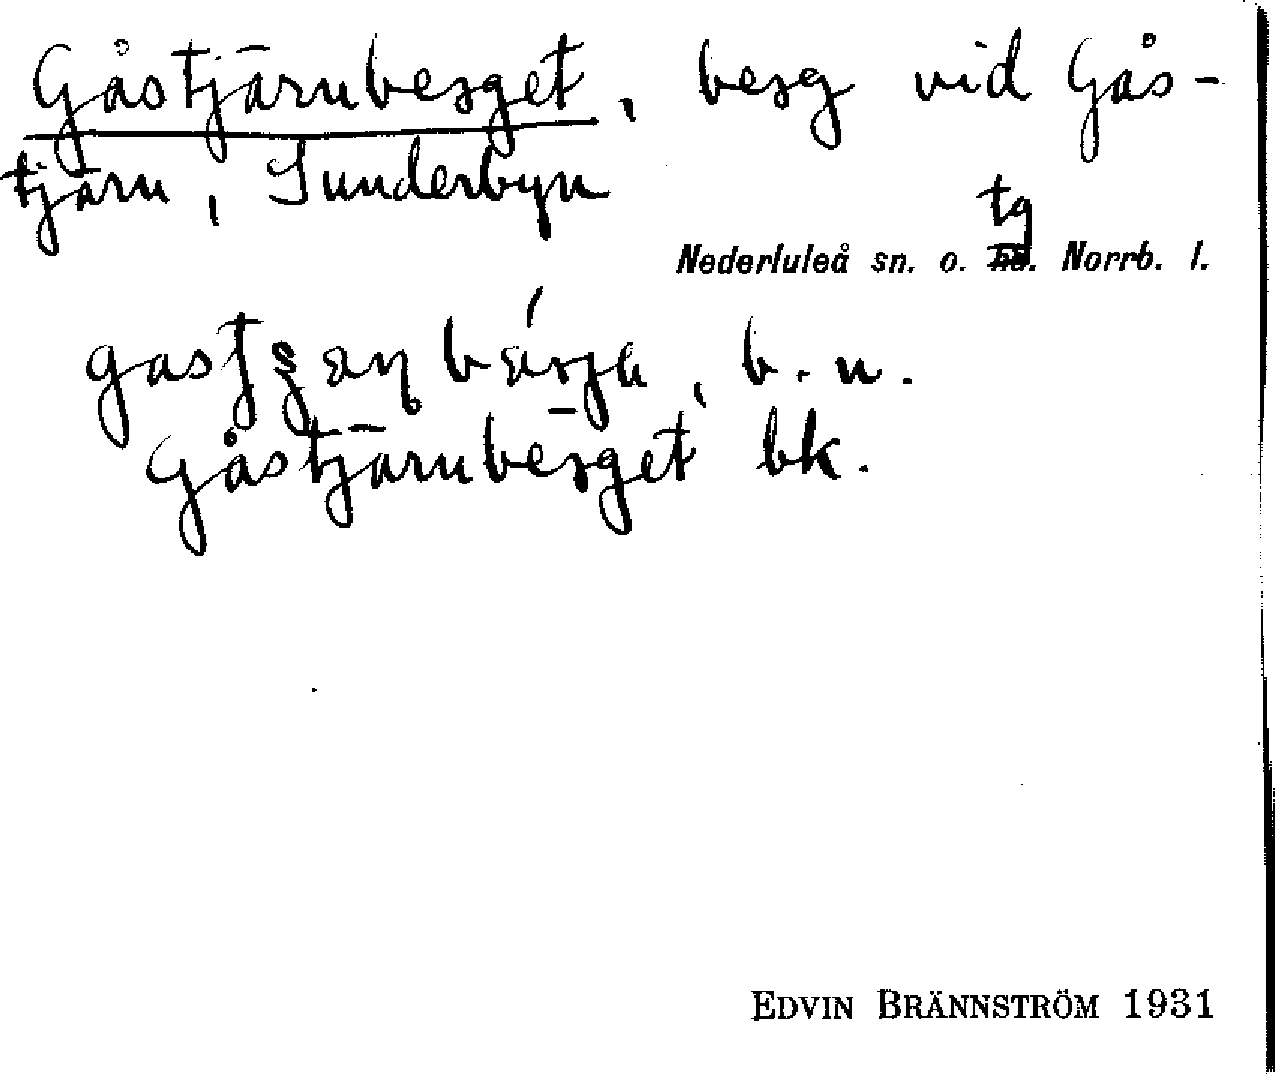 Gåstjärnberget, berg vid Gås-
tjärn, Sunderbyn
tg
Nederluleå sn. o. hd. Norrb. l.
b. n.
Gåstjärnberget bk.
EDVIN BRÄNNSTRÖM 1931